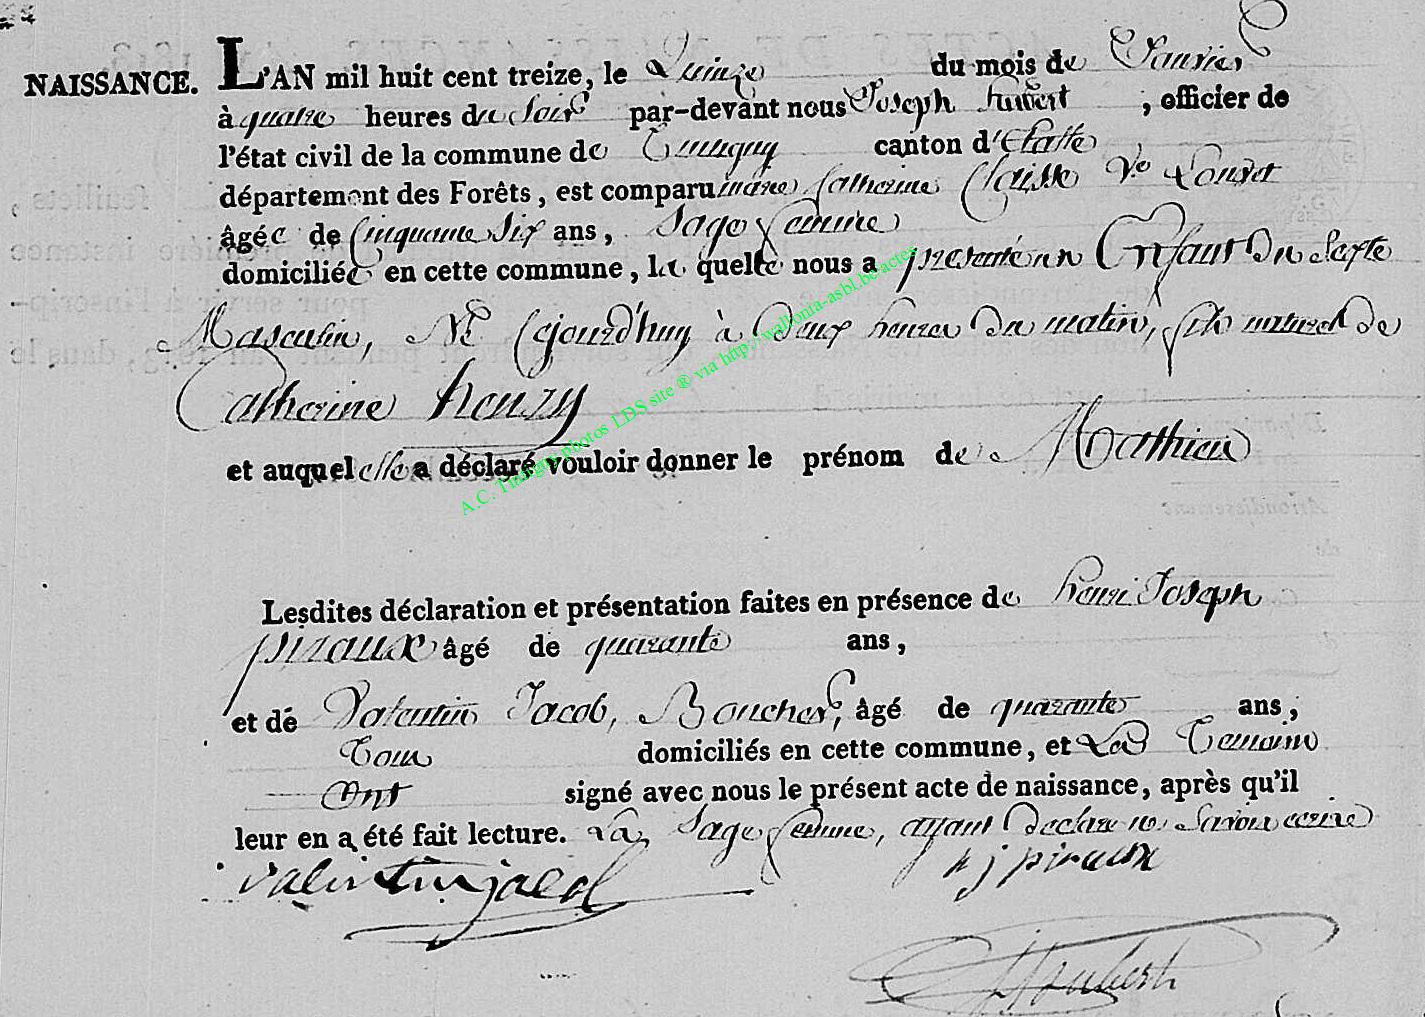 NAISSANCE. L'AN mil huit cent treize, le Quinze du mois de Janvier
à quatre heures du Soir par-devant nous Joseph hubert, officier de
l'état civil de la commune de Tintigny canton d'Etalle
département des Forêts, est comparu marie Catherine Claisse Ve Louret
âgée de Cinquante Six ans, Sage femme
domiciliée en cette commune, la quelle nous a presenté un Enfant Du Sexte
Masculin, Né Cejourd'huy à Deux heures Du matin, fils naturel de
Catherine henry
et auquel elle a déclaré vouloir donner le prénom de Mathieu
A.C. Tintigny photos LDS site ® via http://wallonia-asbl.be/actes
Lesdites déclaration et présentation faites en présence de henri Joseph
piraux âgé de quarante ans,
et de Valentin Jacob, Boucher, âgé de quarante ans,
Tous domiciliés en cette commune, et Les Temoins
Ont signé avec nous le présent acte de naissance, après qu'il
leur en a été fait lecture. La Sage femme, ayant Declaré ne Savoir ecrire
valentin jacob
h j piraux
J Hubert